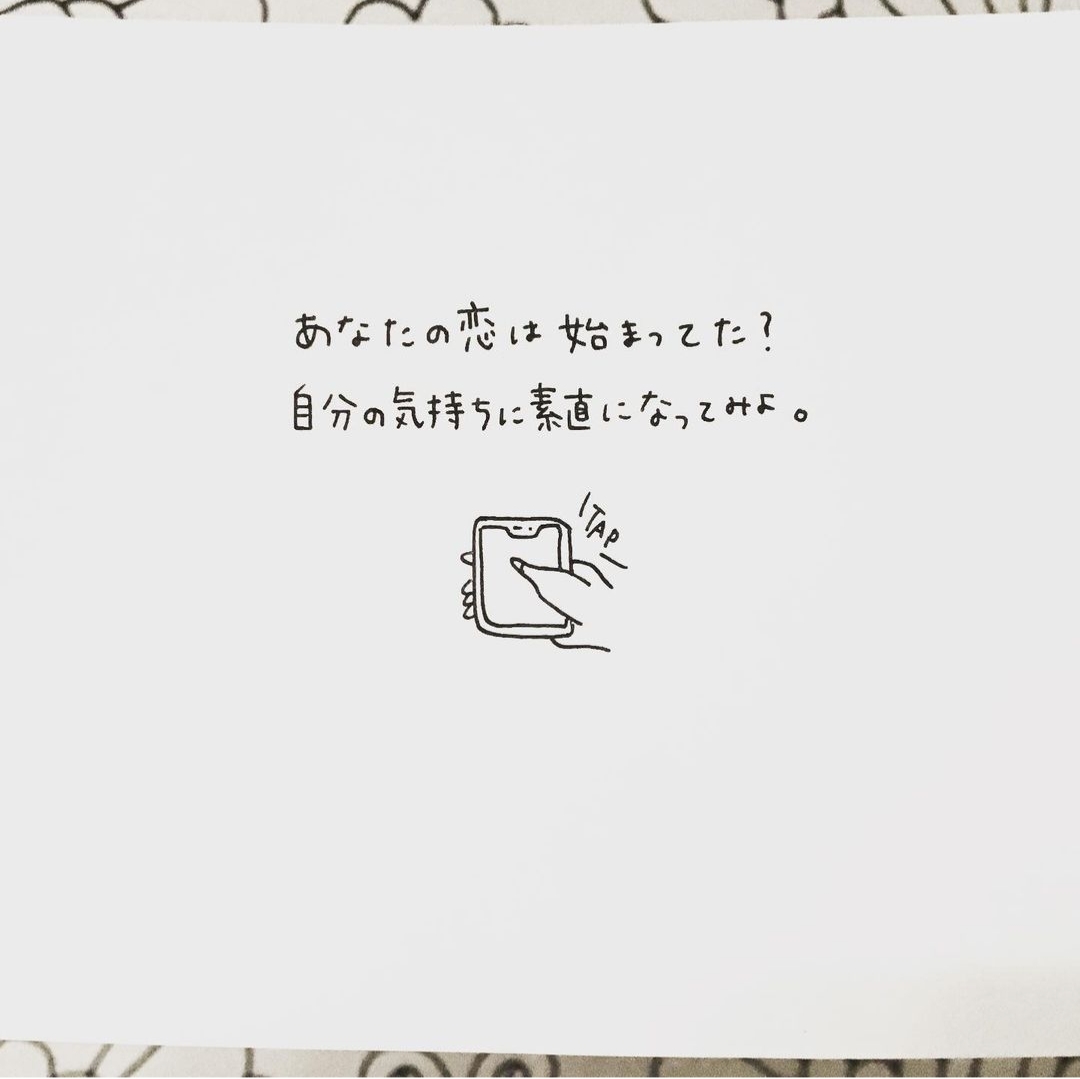 あなたの恋は始まってた?
自分の気持ちに素直になってみよ。
TAP